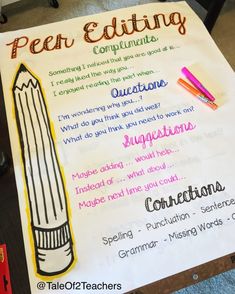 Peer Editing
Compliments
Something I noticed that you are good at is...
I really liked the way you...
I enjoyed reading the part when...
Questions
I'm wondering why you...?
What do you think you did well?
What do you think you need to work on?
Suggestions
Maybe adding ... would help...
Instead of .... what about...
Maybe next time you could...
Corrections
Spelling - Punctuation - Sentence
Grammar - Missing Words -
@TaleOf2Teachers